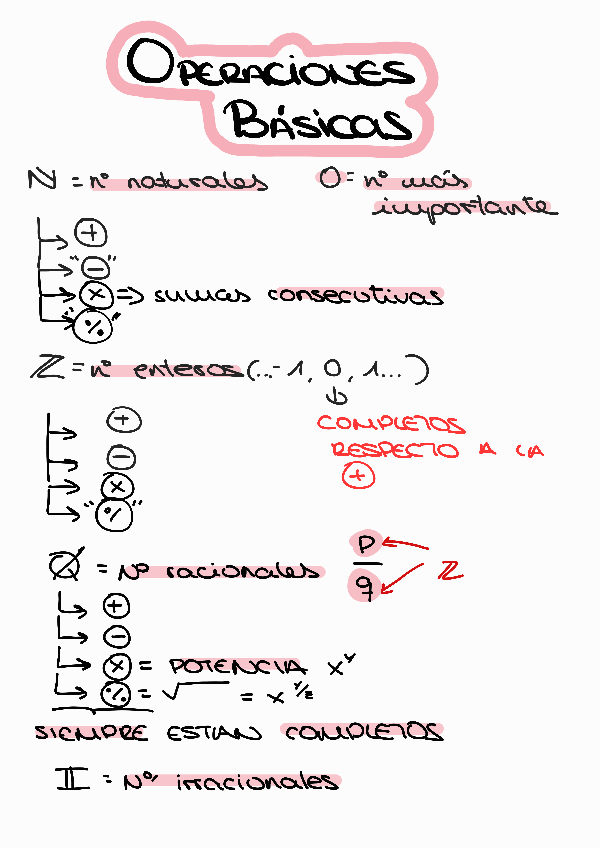 OPERACIONES
BÁSICAS
N = nº naturales 0 = nº más
importante
+
"−"
x => sumas consecutivas
"%"
Z = nº enteros (...-1, 0, 1...)
COMPLETOS
RESPECTO A LA
+
+
−
x
"%"
Q = Nº racionales p/q Z
+
−
x = POTENCIA xʸ
% = √ = x^1/2
SIEMPRE ESTÁN COMPLETOS
II = Nº irracionales